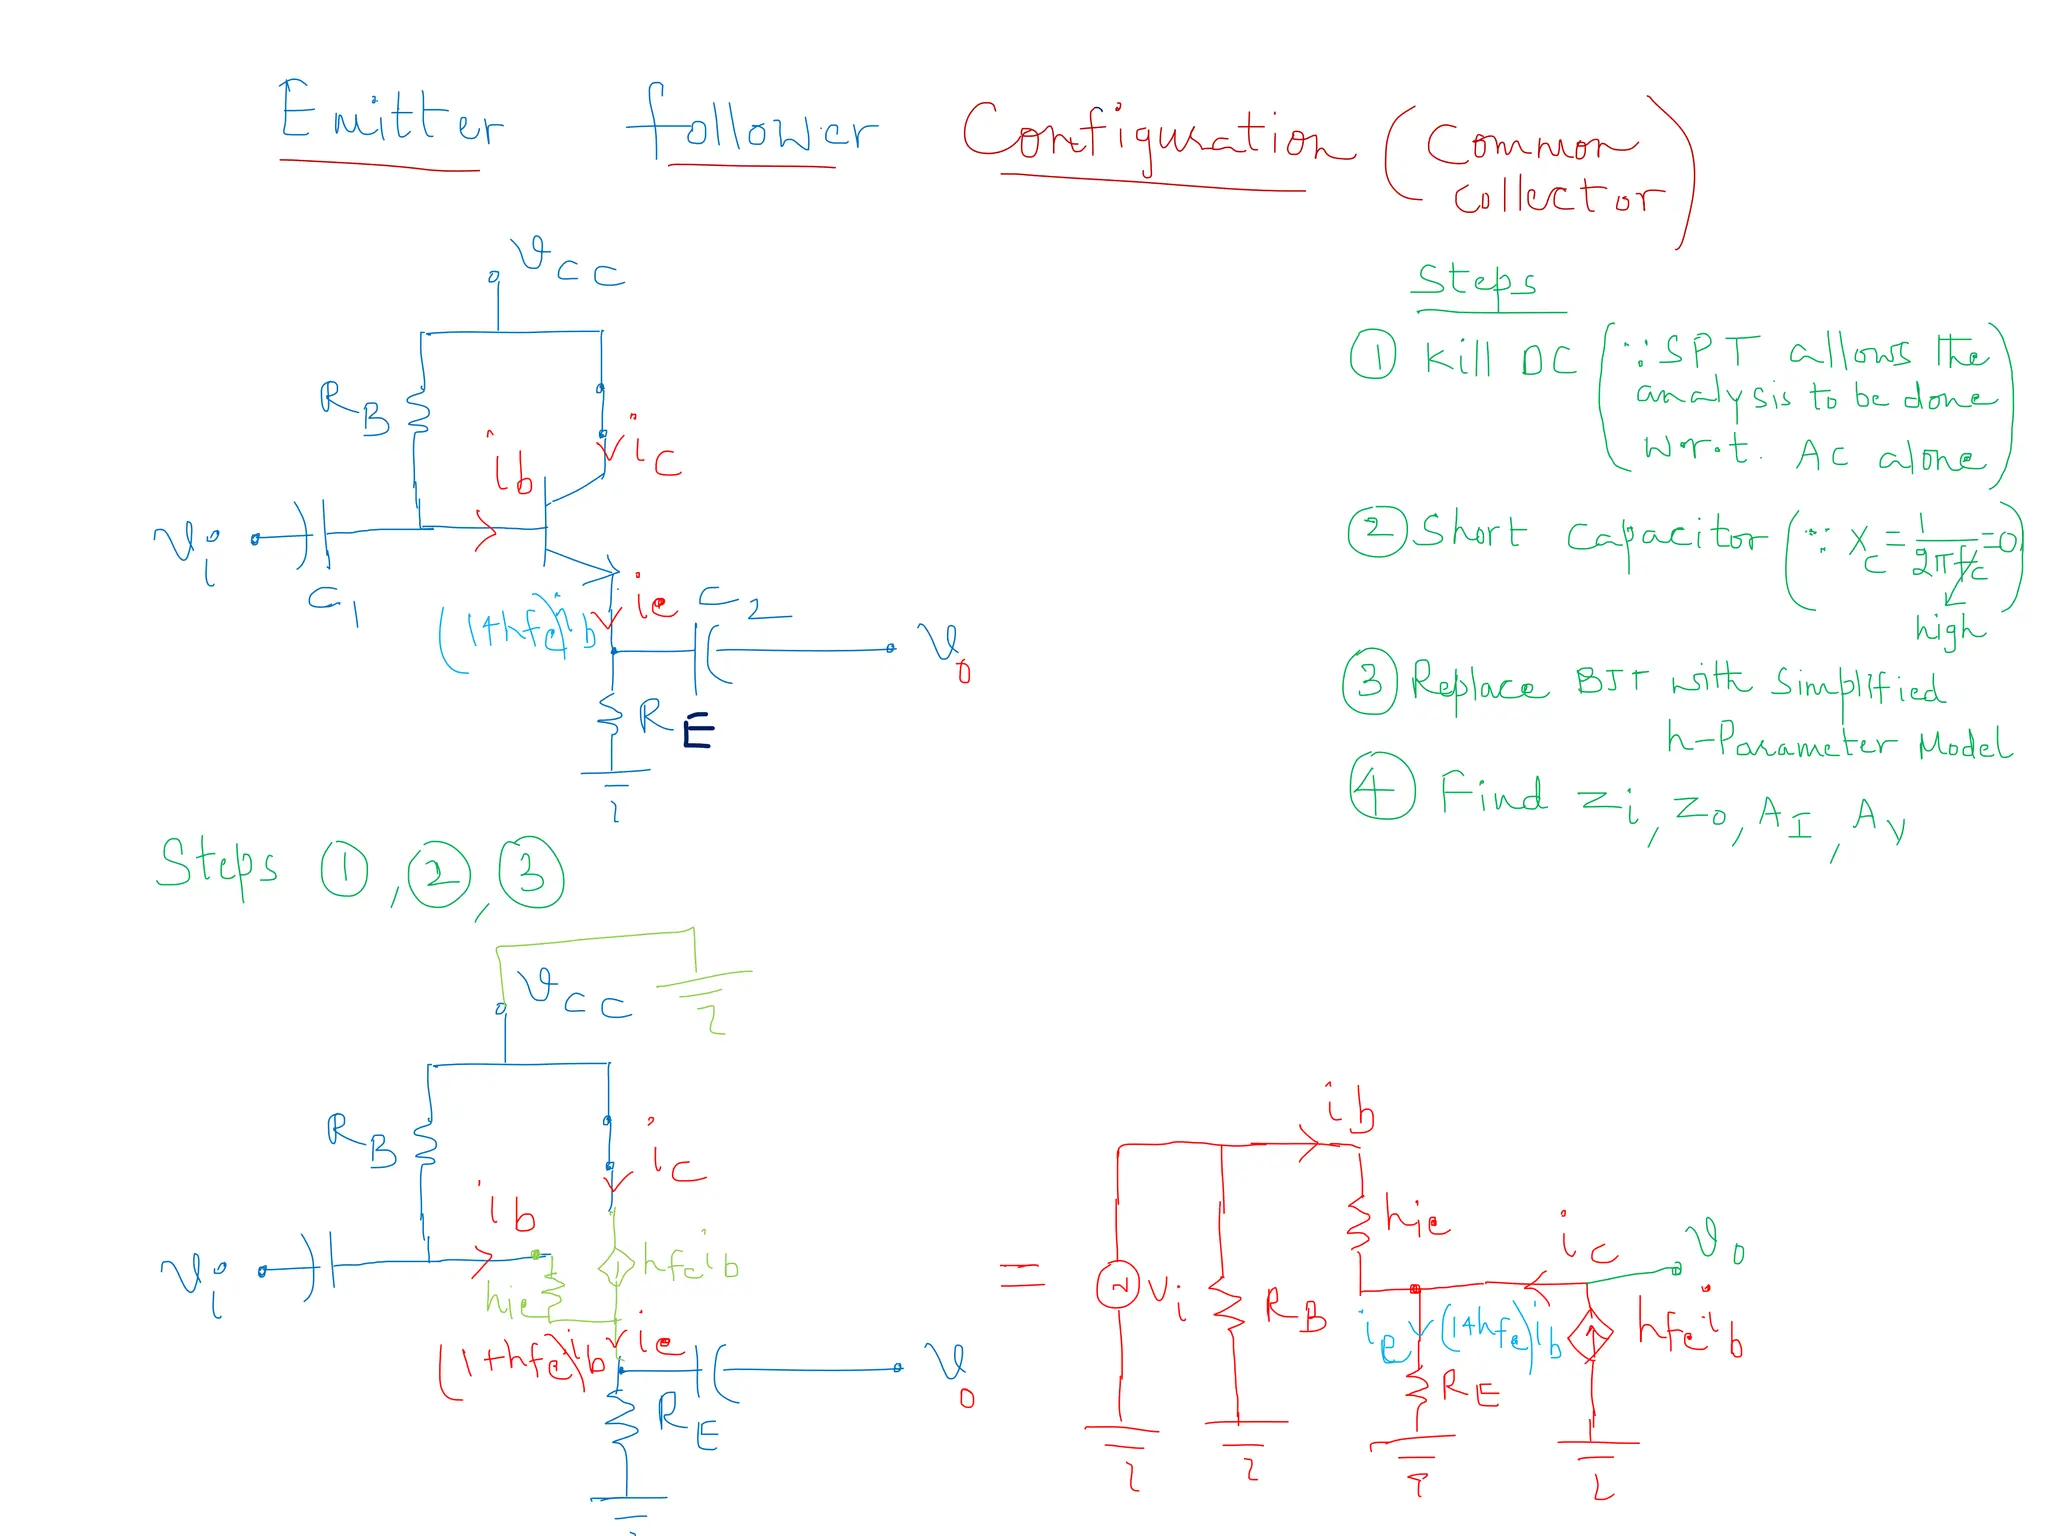 Emitter follower Configuration (Common
collector)
VCC
RB
ib
ic
Vi
C1
(1+hfe)ib
ie
C2
Vo
RE
Steps
① Kill DC (∵ SPT allows the
analysis to be done
w.r.t. AC alone)
② Short Capacitor (∵ Xc = 1/2πfc = 0)
high
③ Replace BJT with Simplified
h-Parameter Model
④ Find Zi, Zo, AI, AV
Steps ①, ②, ③
VCC
RB
ic
ib
Vi
hfeib
hie
(1+hfe)ib
ie
Vo
RE
=
ib
hie
ic
Vo
Vi
RB
ie
(1+hfe)ib
hfeib
RE